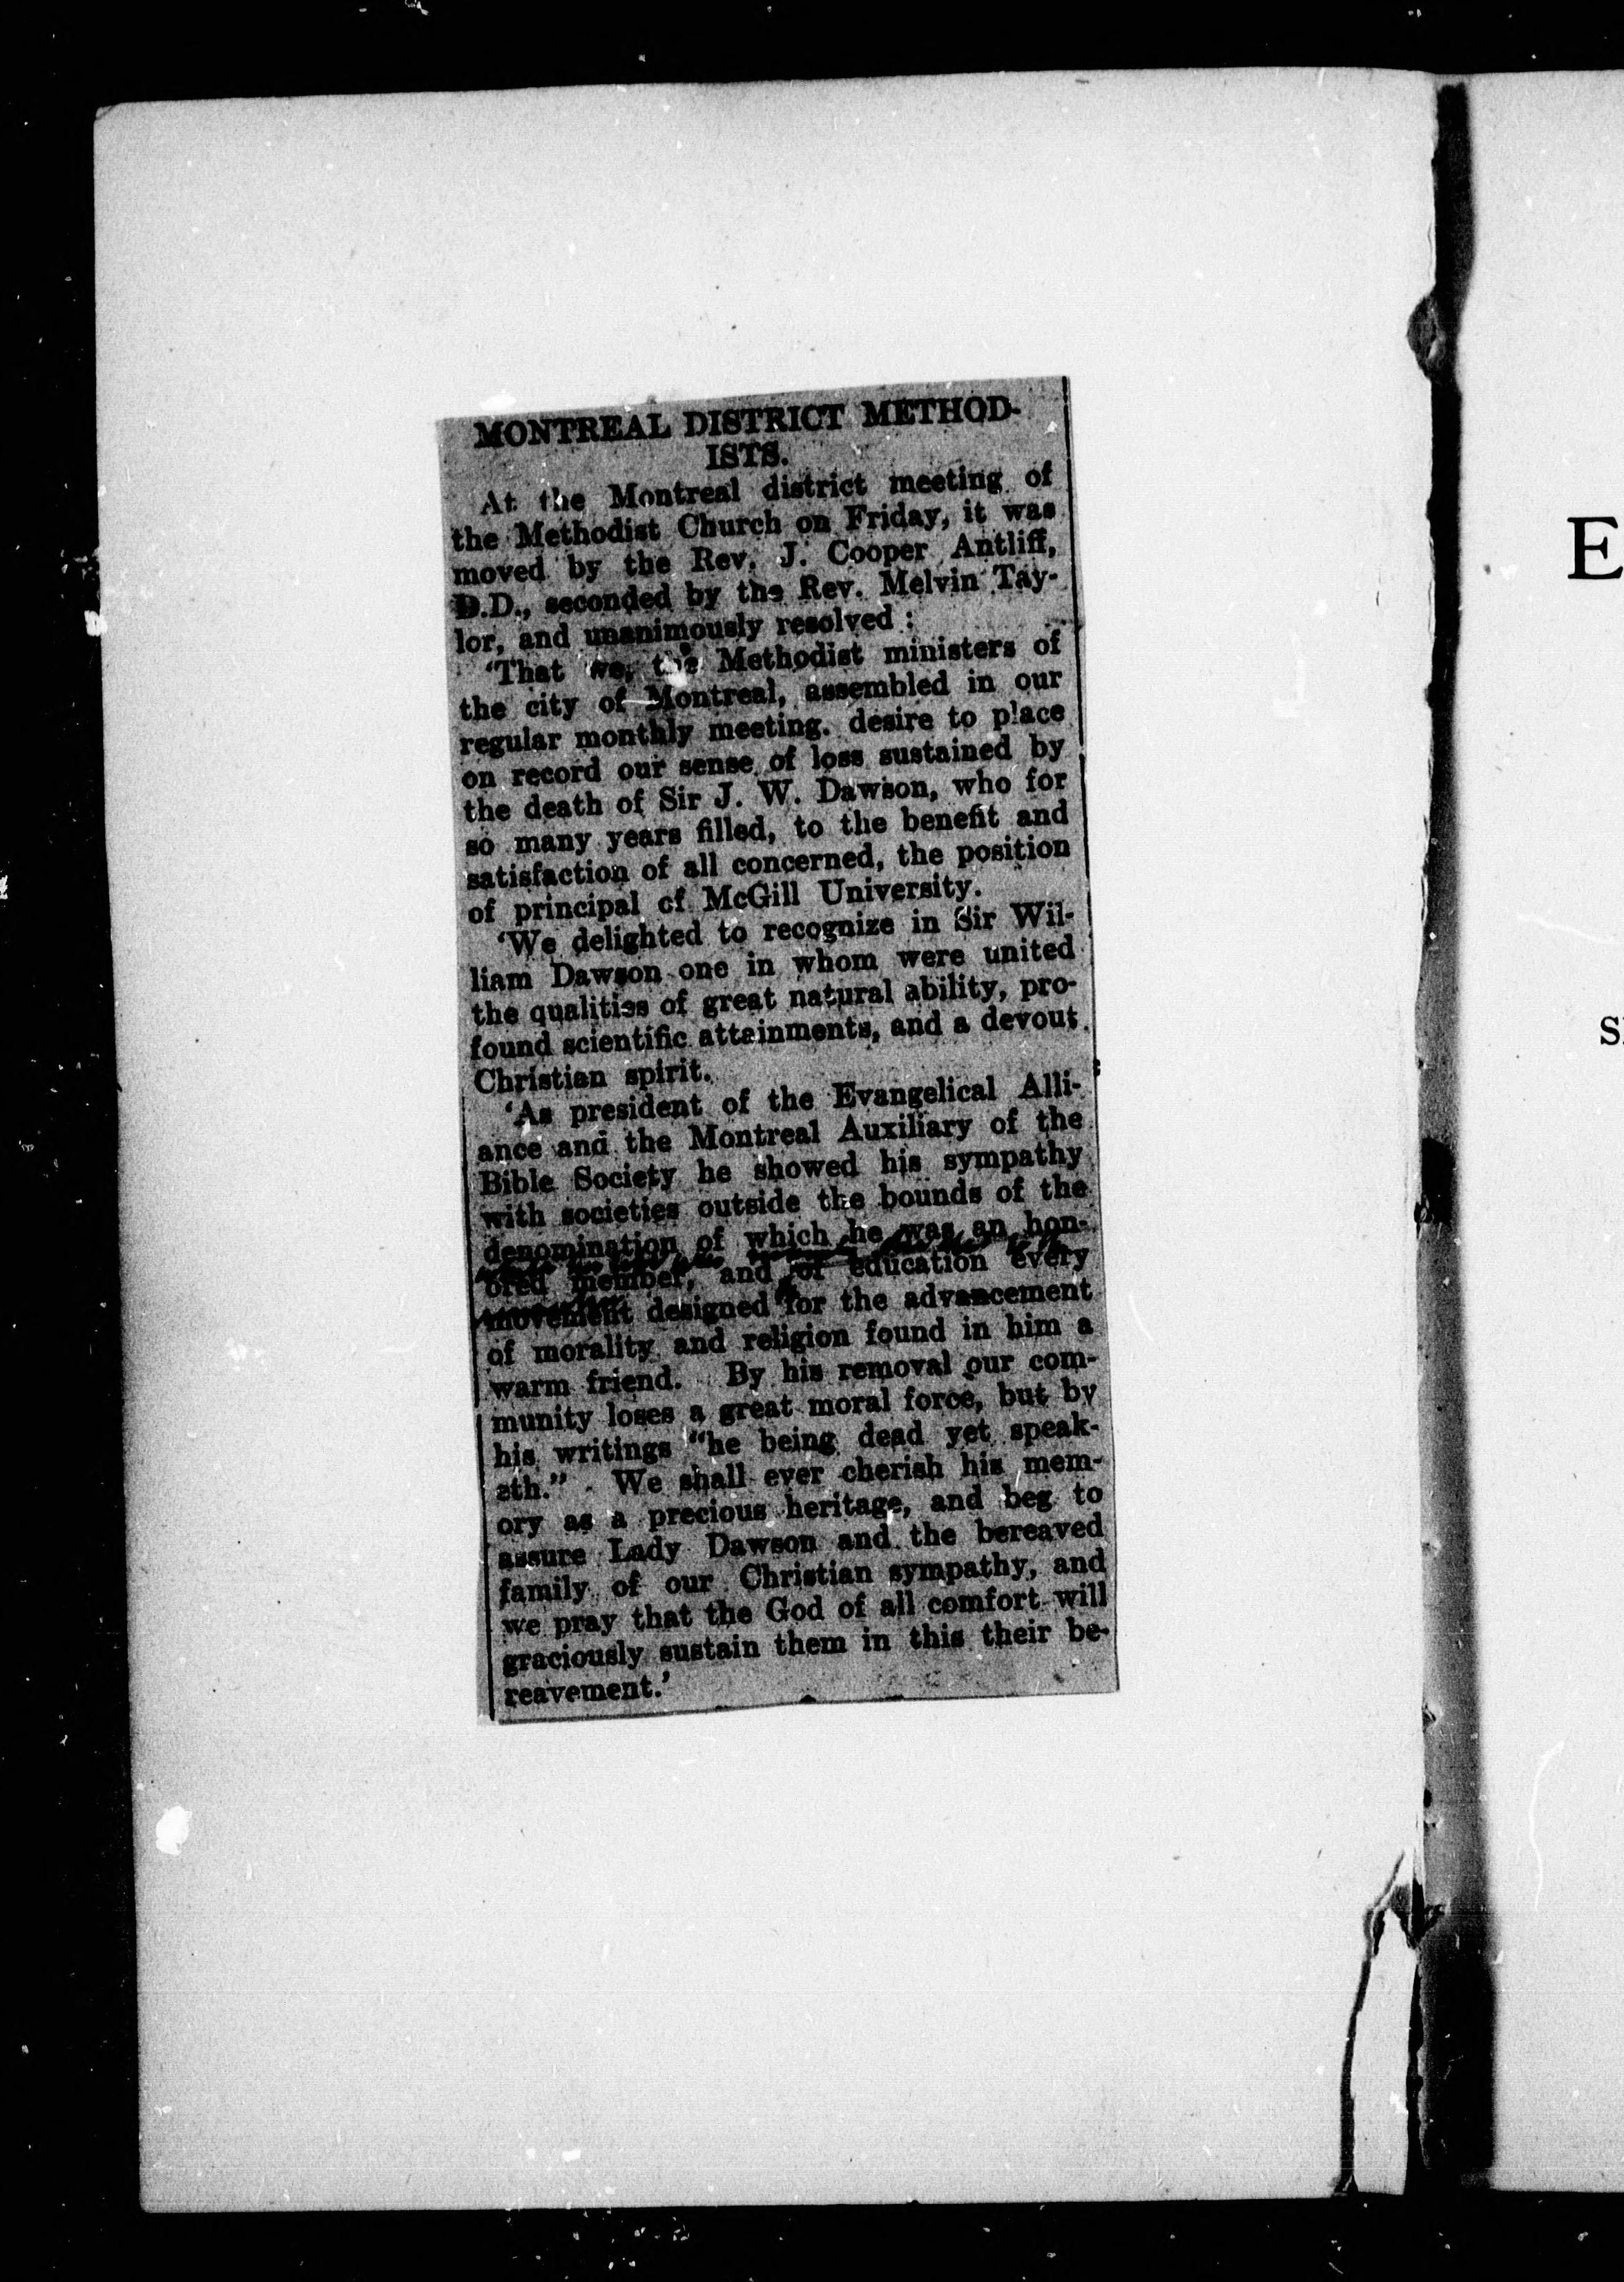 MONTREAL DISTRICT METHOD-
ISTS.
At the Montreal district meeting of
the Methodist Church on Friday, it was
moved by the Rev. J. Cooper Antliff,
D.D., seconded by the Rev. Melvin Tay-
lor, and unanimously resolved :
'That we, the Methodist ministers of
the city of Montreal, assembled in our
regular monthly meeting, desire to place
on record our sense of loss sustained by
the death of Sir J. W. Dawson, who for
so many years filled, to the benefit and
satisfaction of all concerned, the position
of principal of McGill University.
'We delighted to recognize in Sir Wil-
liam Dawson one in whom were united
the qualities of great natural ability, pro-
found scientific attainments, and a devout
Christian spirit.
'As president of the Evangelical Alli-
ance and the Montreal Auxiliary of the
Bible Society he showed his sympathy
with societies outside the bounds of the
denomination of which he was an hon-
ored member, and of education every
movement designed for the advancement
of morality and religion found in him a
warm friend. By his removal our com-
munity loses a great moral force, but by
his writings "he being dead yet speak-
eth." We shall ever cherish his mem-
ory as a precious heritage, and beg to
assure Lady Dawson and the bereaved
family of our Christian sympathy, and
we pray that the God of all comfort will
graciously sustain them in this their be-
reavement.'
E